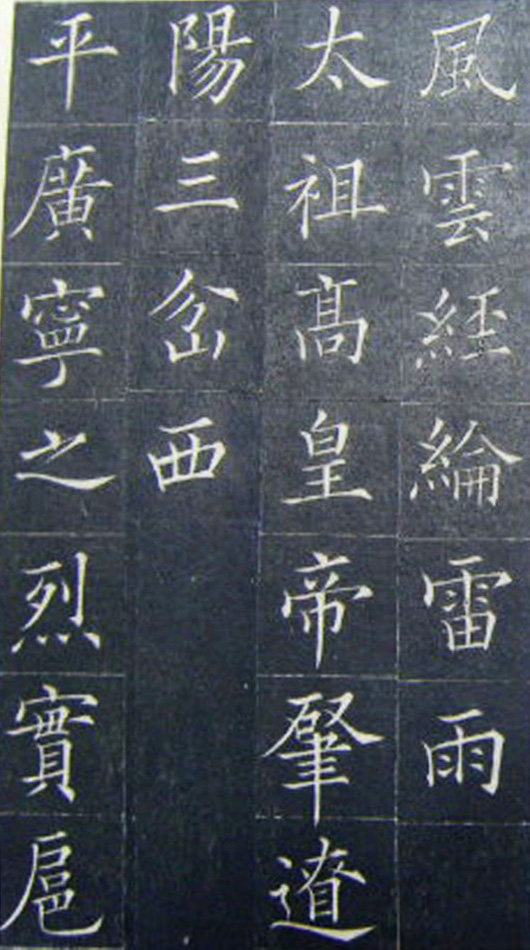 風雲經綸雷雨
太祖髙皇帝肈遼
陽三岔西
平廣寧之烈實扈